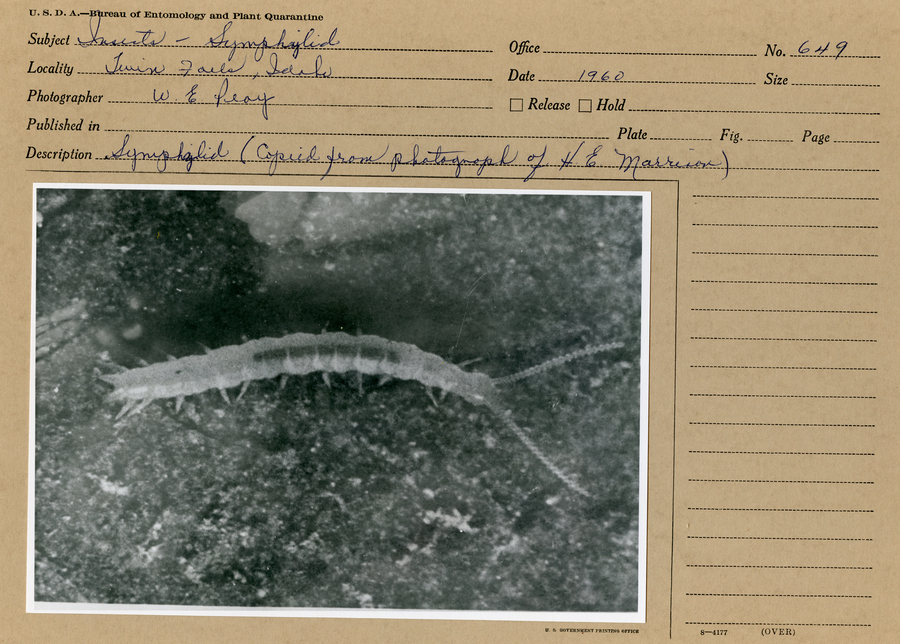 U. S. D. A.—Bureau of Entomology and Plant Quarantine
Subject Insects - Symphylid Office No. 649
Locality Twin Falls, Idaho Date 1960 Size
Photographer W. E. Peay Release Hold
Published in Plate Fig. Page
Description Symphylid (Copied from photograph of H. E. Morrison)
U. S. GOVERNMENT PRINTING OFFICE 8—4177 (OVER)